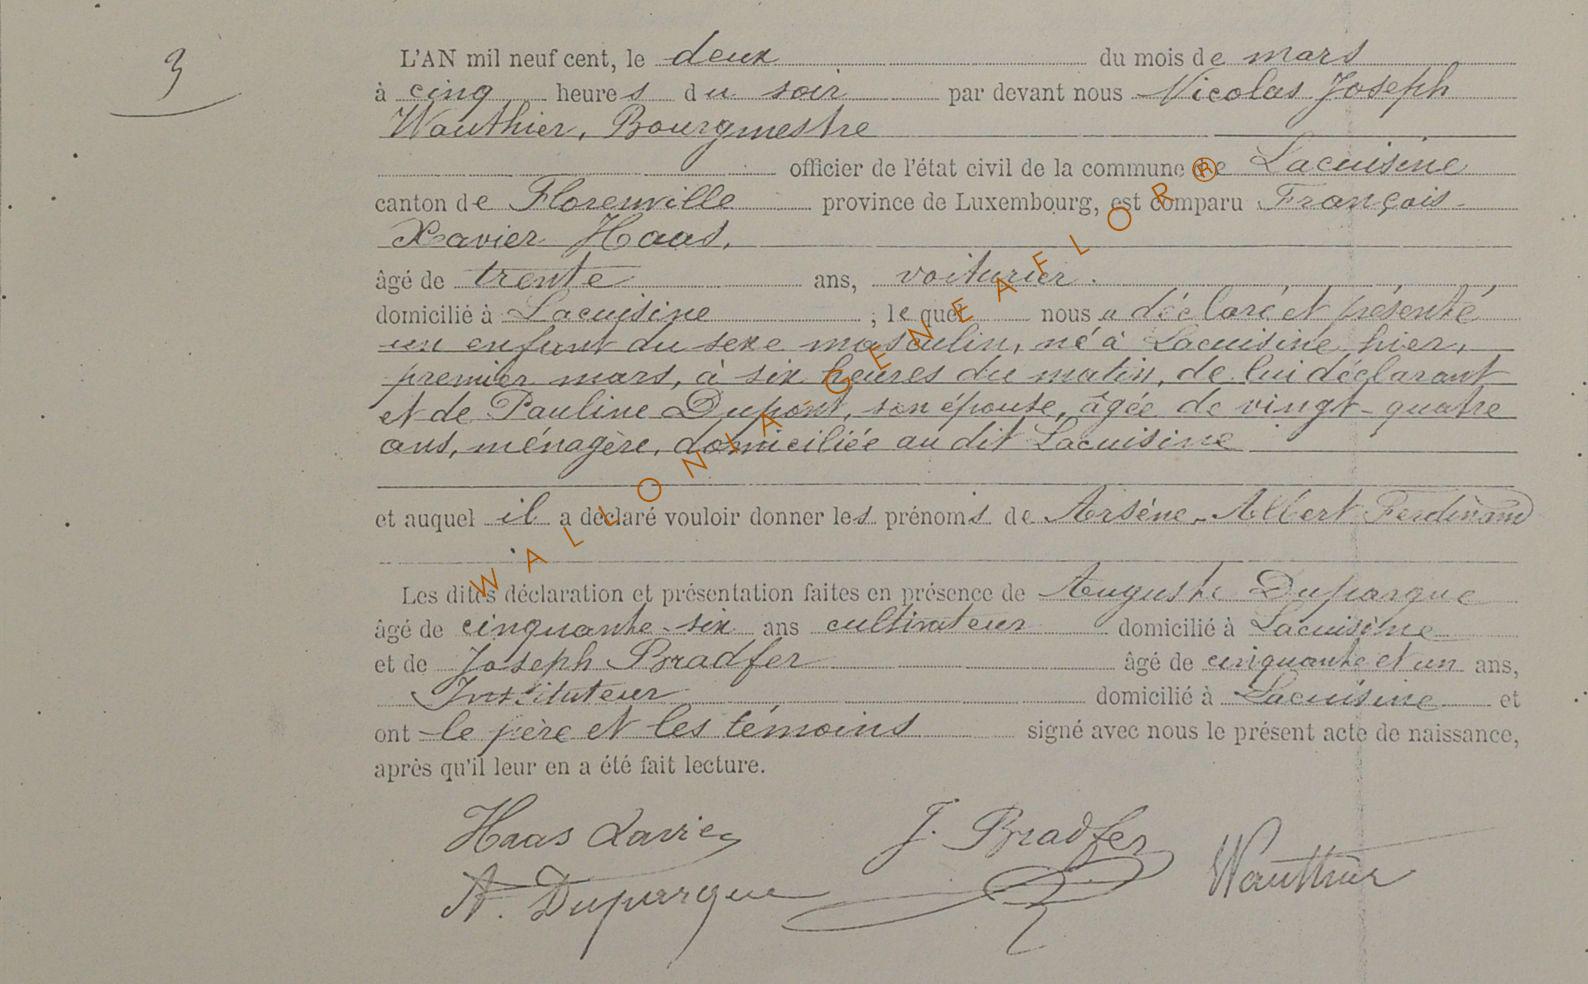 3
L'AN mil neuf cent, le deux du mois de mars
à cinq heures du soir par devant nous Nicolas Joseph
Wauthier, Bourgmestre
officier de l'état civil de la commune de Lacuisine
canton de Florenville province de Luxembourg, est comparu François-
Xavier Haas,
âgé de trente ans, voiturier.
domicilié à Lacuisine ; lequel nous a déclaré et présenté
un enfant du sexe masculin, né à Lacuisine hier,
premier mars, à six heures du matin, de lui déclarant
et de Pauline Dupont, son épouse, âgée de vingt-quatre
ans, ménagère, domiciliée au dit Lacuisine
et auquel il a déclaré vouloir donner les prénoms de Arsène-Albert Ferdinand
Les dites déclaration et présentation faites en présence de Auguste Duparque
âgé de cinquante-six ans cultivateur domicilié à Lacuisine
et de Joseph Bradfer âgé de cinquante et un ans,
Instituteur domicilié à Lacuisine et
ont le père et les témoins signé avec nous le présent acte de naissance,
après qu'il leur en a été fait lecture.
Haas Xavier J. Bradfer Wauthier
A. Duparque
WALLONIA-GENEAFLOR®